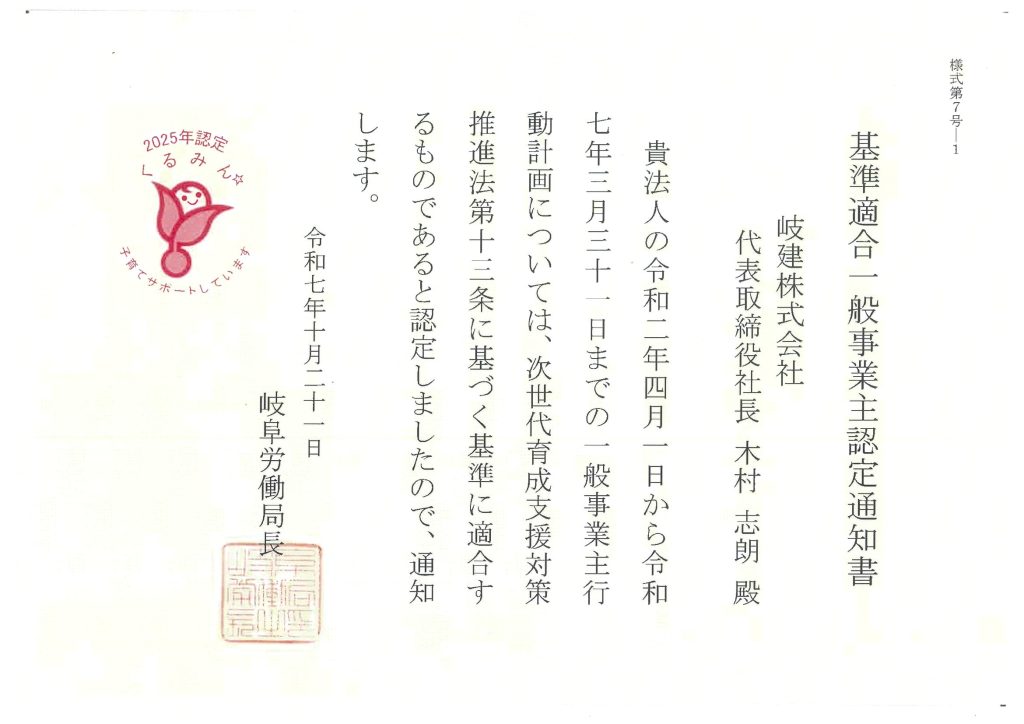 様式第７号―１
基準適合一般事業主認定通知書
岐建株式会社
代表取締役社長 木村 志朗 殿
貴法人の令和二年四月一日から令和
七年三月三十一日までの一般事業主行
動計画については、次世代育成支援対策
推進法第十三条に基づく基準に適合す
るものであると認定しましたので、通知
します。
令和七年十月二十一日
岐阜労働局長
2025年認定
くるみん☆
子育てサポートしています